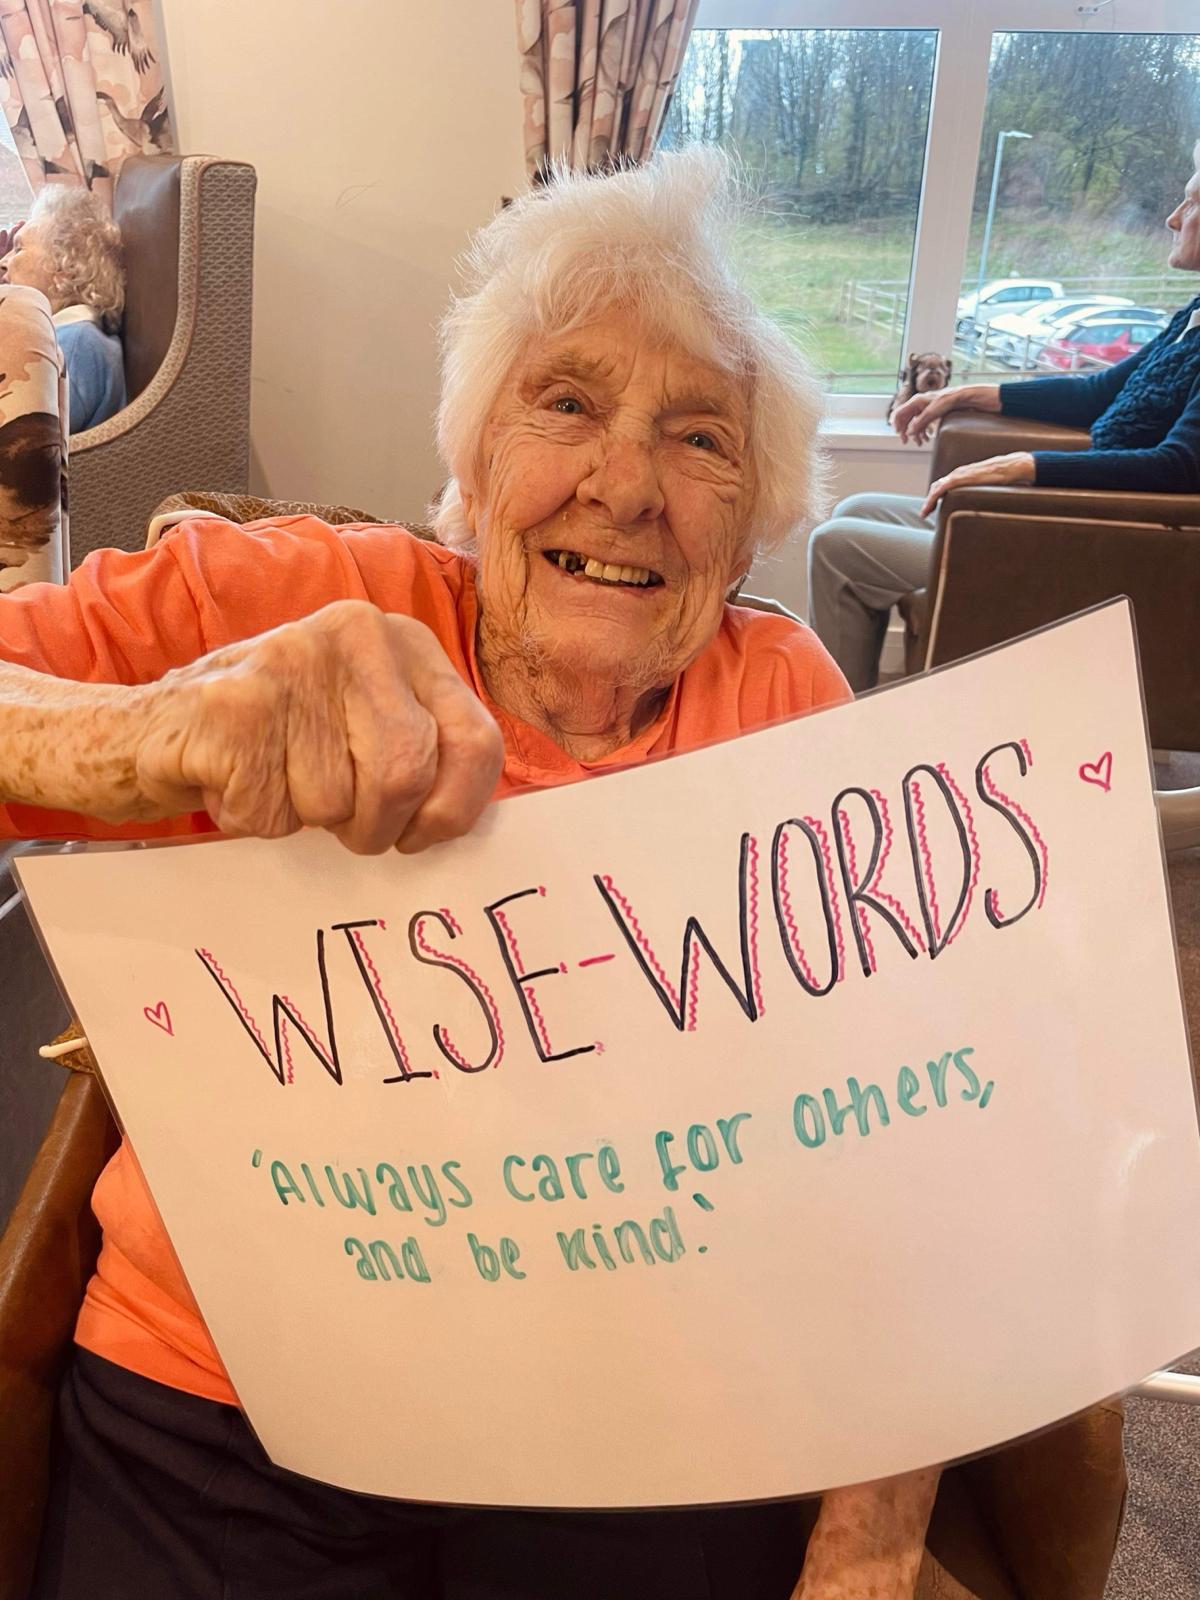 WISE-WORDS
'Always care for others,
and be kind.'